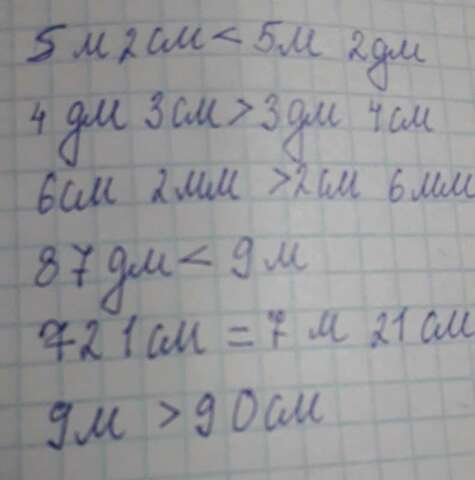 5 м 2 см < 5 м 2 дм
4 дм 3 см > 3 дм 4 см
6 см 2 мм > 2 см 6 мм
87 дм < 9 м
721 см = 7 м 21 см
9 м > 90 см